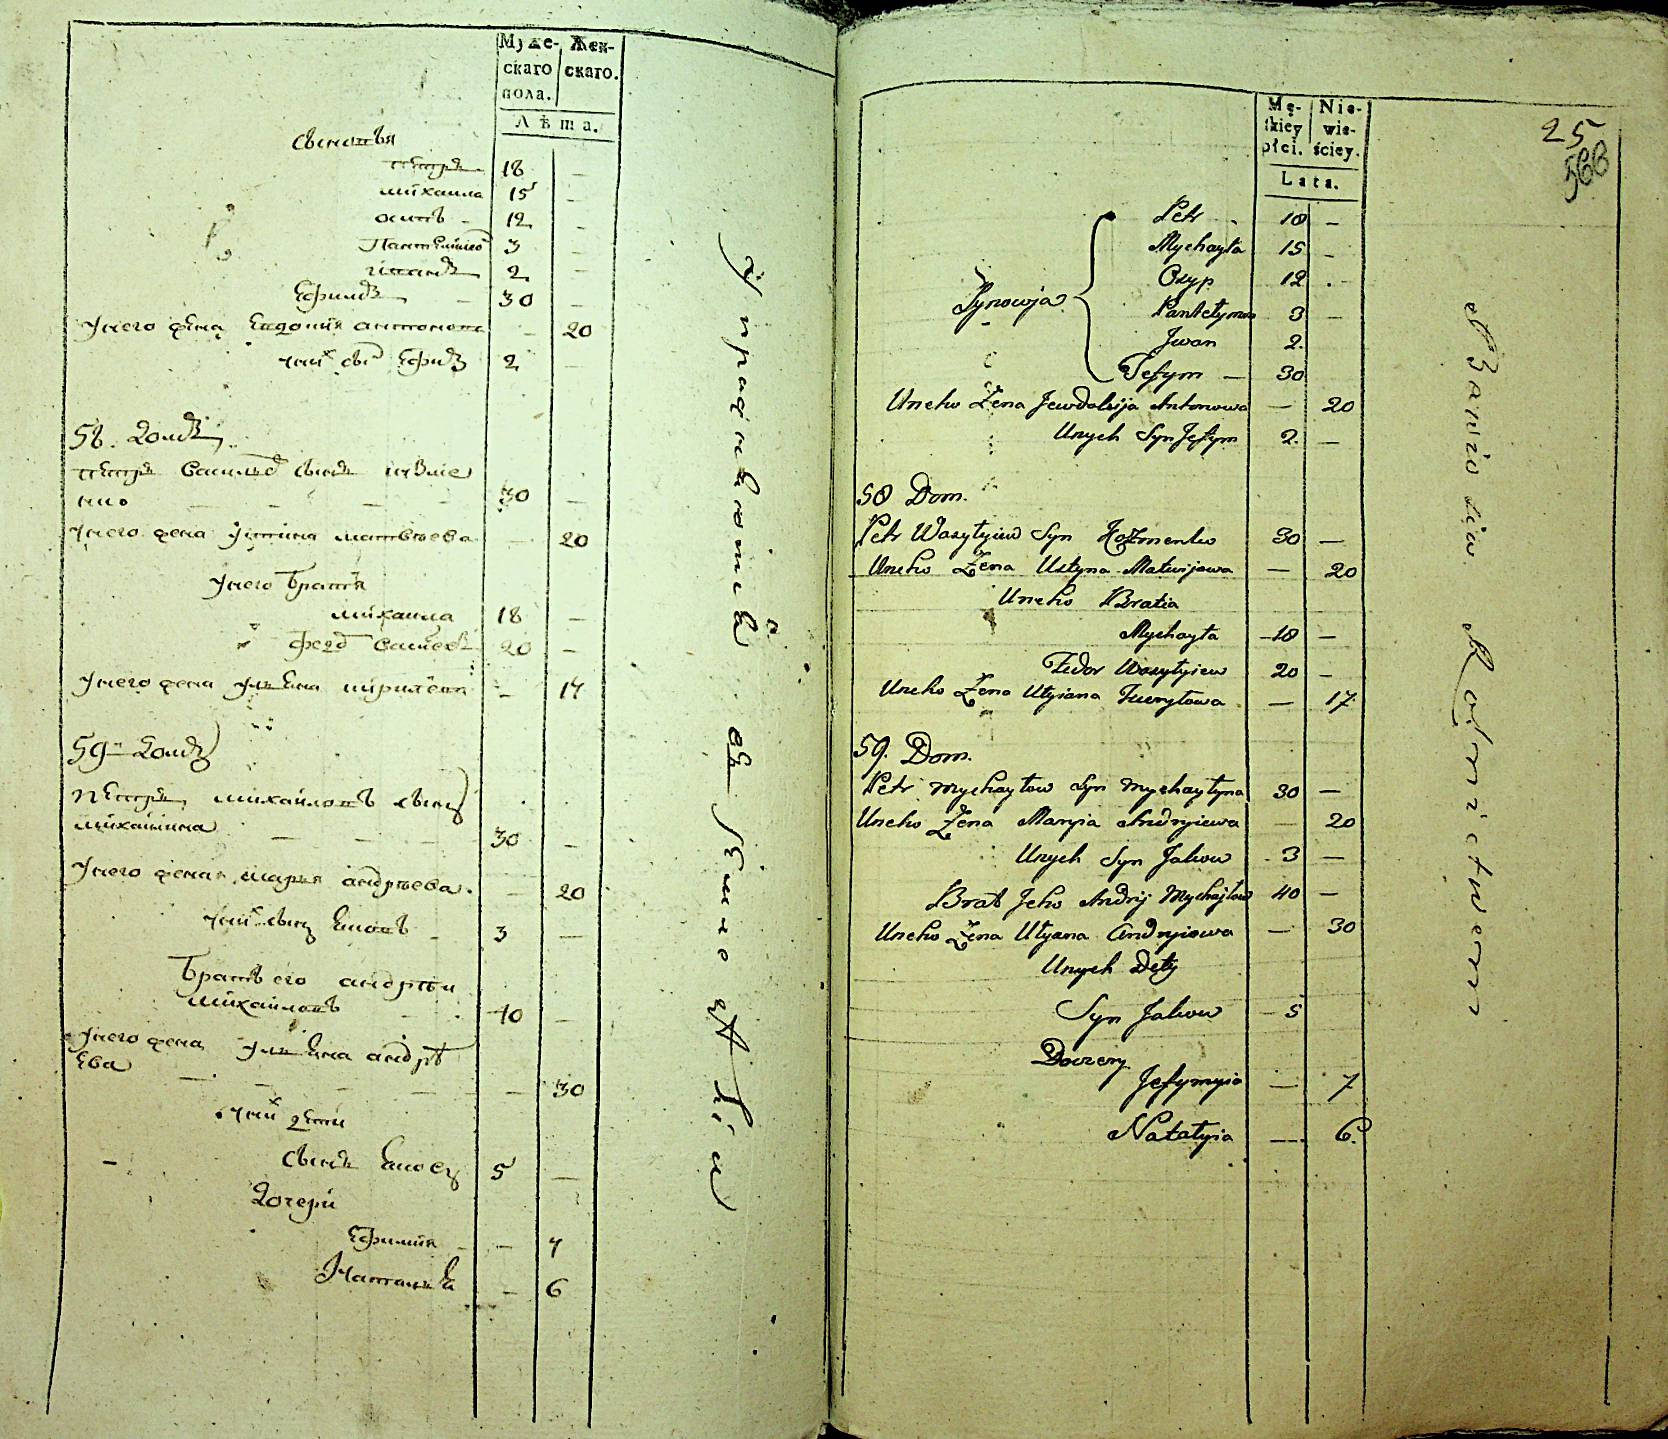 Муже- Жен-
скаго скаго.
пола.
Лѣта.
Сыновья
Петръ 18 —
Михаила 15 —
Осипъ 12 —
3 —
Иванъ 2 —
Ефимъ 30 —
Унего жена Евдокия Антонова — 20
Уних сын Ефим 2 —
58. Домъ
Петръ Васильев сынъ
30 —
Унего жена Устина Матвѣева — 20
Унего Братя
Михаила 18 —
Федор 20 —
Унего жена Ульяна — 17
59 Домъ
Петръ Михайловъ сынъ
Михайлина 30 —
Унего жена Марья Андрѣева — 20
Уних сынъ Яковъ 3 —
Братъ его Андрѣи
Михайловъ 40 —
Унего жена Ульяна Андрѣ
ева — 30
Уних дети
Сынъ Яковъ 5 —
Дочери
Ефимия — 7
Наталья — 6
Упражняются въ
Mę- Nie-
skiey wie-
płci. ściey.
Lata.
25
566
Petr 18 —
Mychayła 15 —
Osyp 12 —
Synowja Pantełymon 3 —
Jwan 2
Jefym — 30
Uneho Żena Jewdokija Antonowa — 20
Unych Syn Jefym 2 —
58 Dom.
Petr Wasyłyiew Syn Kozmenko 30 —
Uneho Żena Ustyna Matwijowa — 20
Uneho Bratia
Mychayła 18 —
Fedor Wasyłyiew 20 —
Uneho Żena Ulyiana Kuryłowa — 17
59. Dom.
Petr Mychayłow Syn Mychayłyna 30 —
Uneho Żena Maryia Andryiewa — 20
Unych Syn Jakow 3 —
Brat Jeho Andrij Mychajłow 40 —
Uneho Żena Ulyana Andryiowa — 30
Unych Dety
Syn Jakow 5
Doczery
Jefymyia — 7
Natałyia — 6
Bawio się Rolnictwem